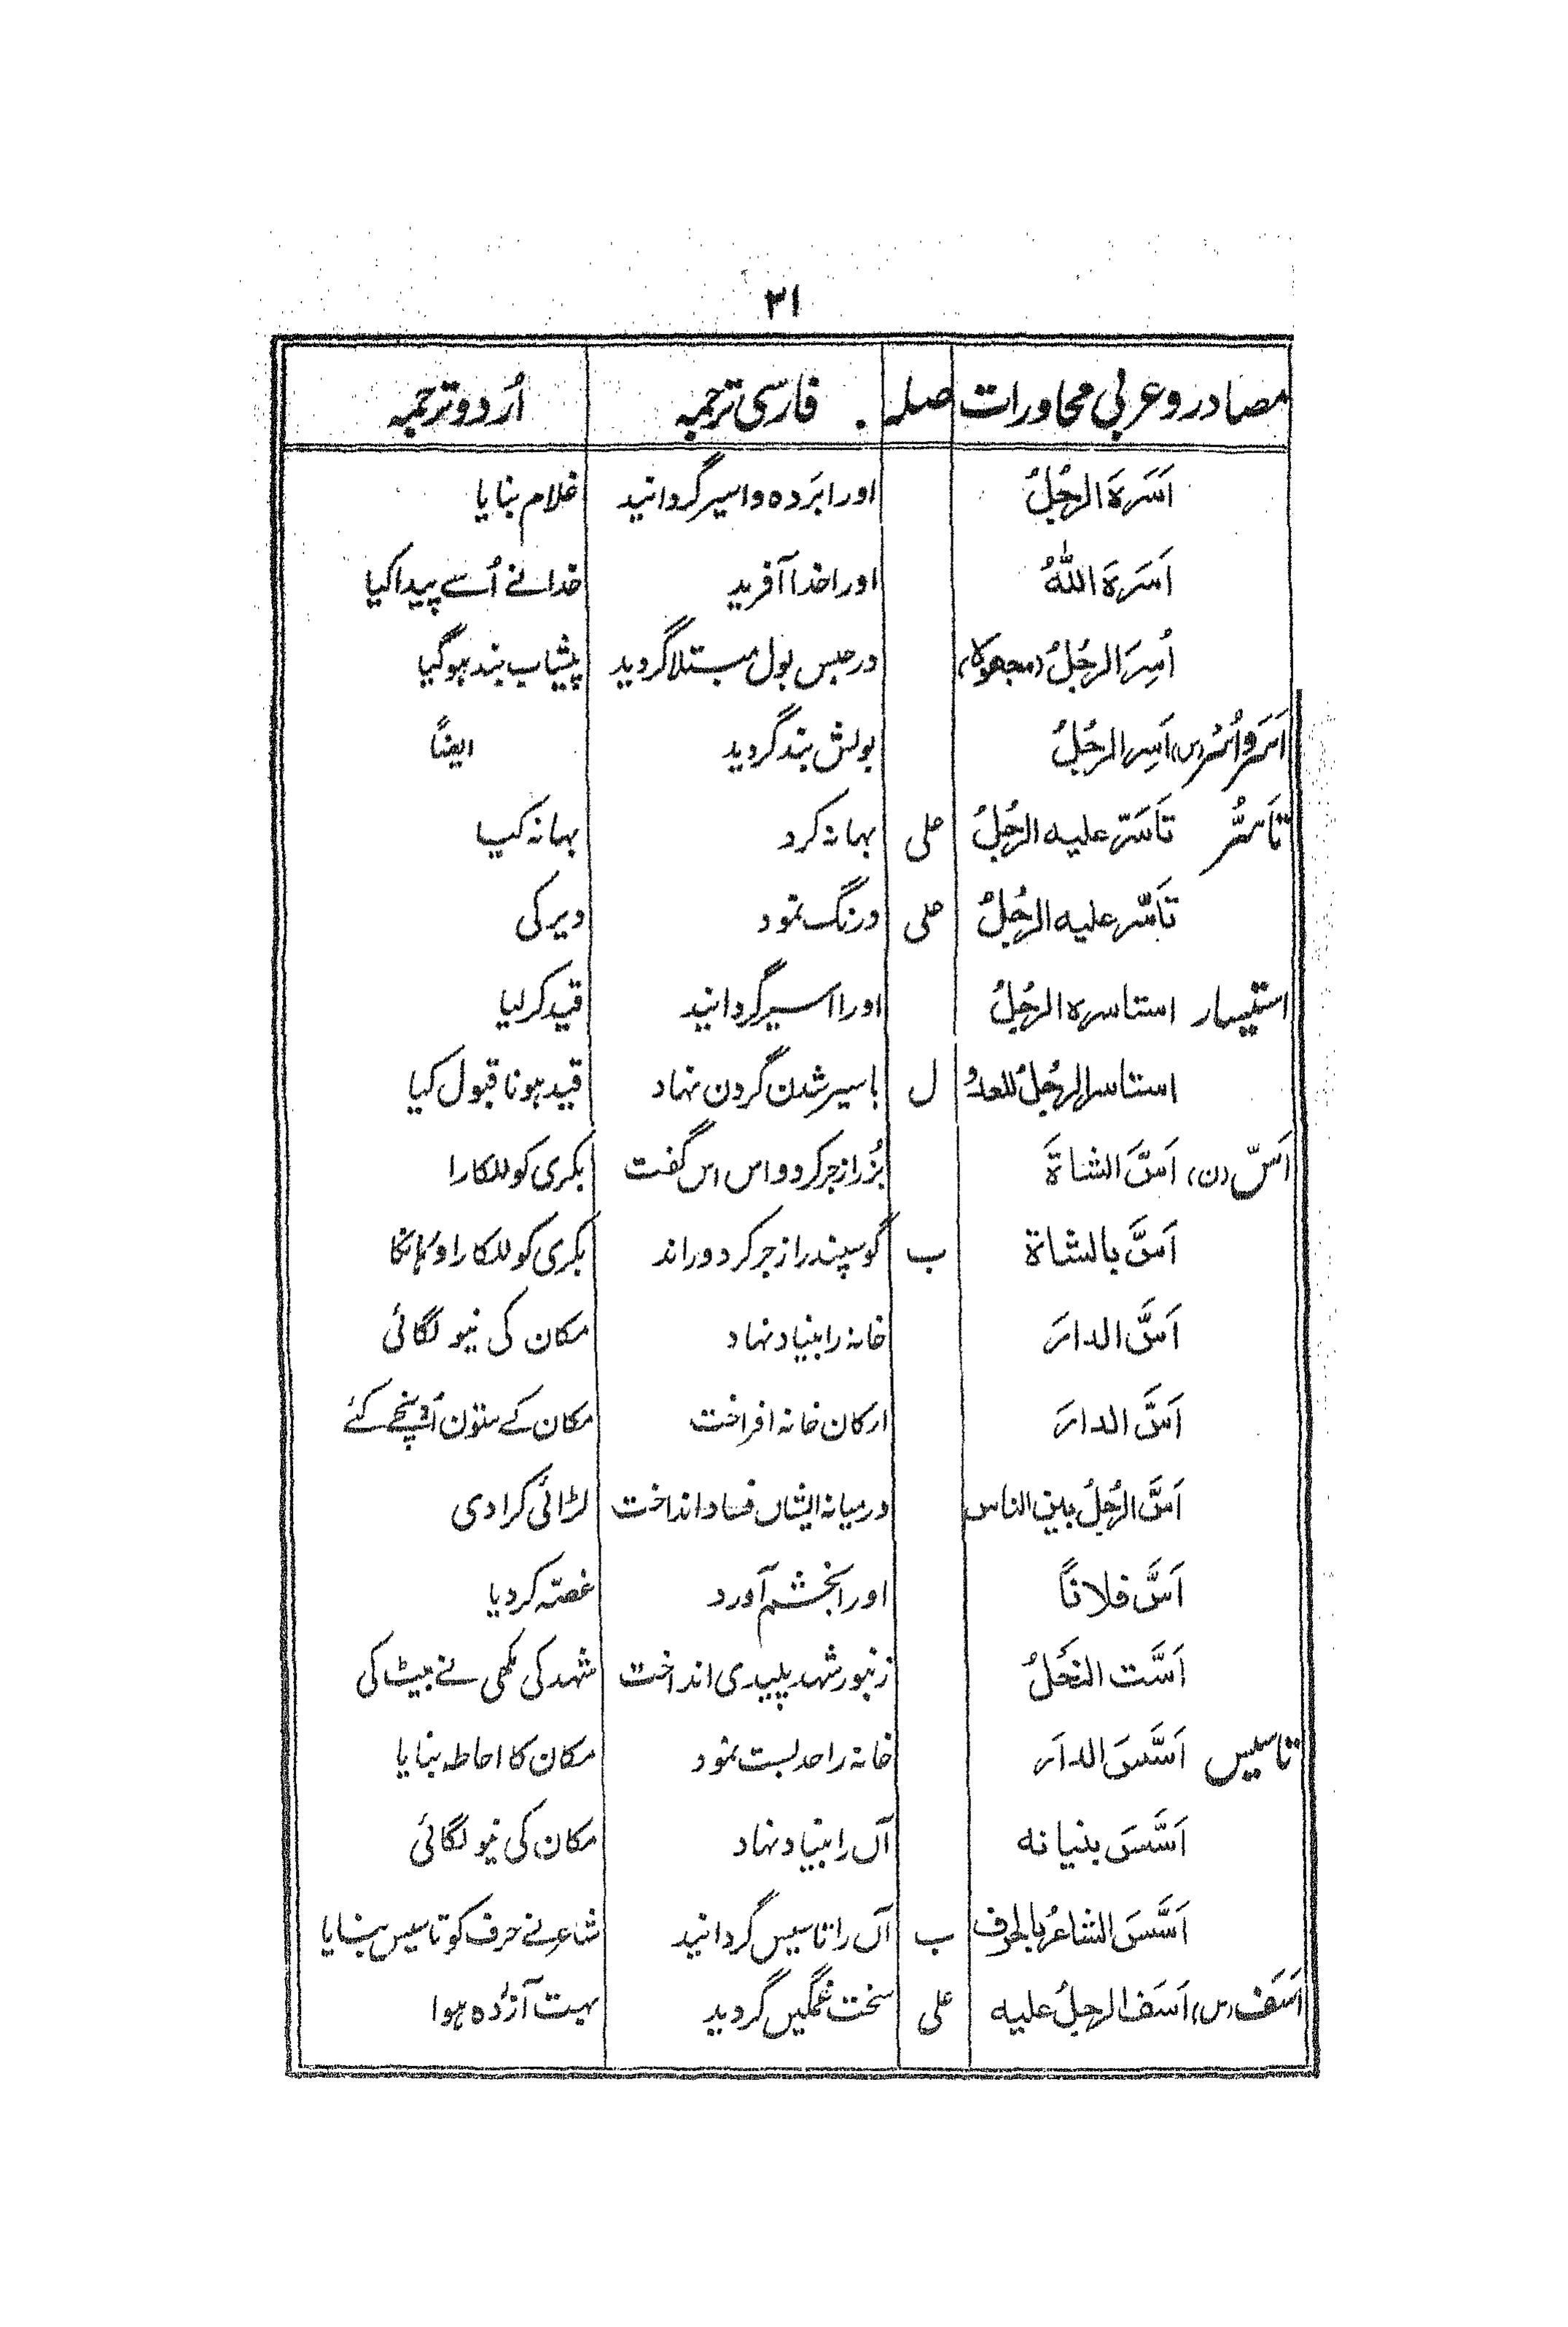 ۳۱
مصادر و عربی محاورات صلہ فارسی ترجمہ اُردو ترجمہ
اَسَرَہَ الرجُلُ اورا بَردہ و اسیر گردانید غلام بنایا
اَسَرَہَ اللّٰهُ اورا خدا آفرید خدا نے اُسے پیدا کیا
اُسِرَ الرجُلُ (مجھولا) در حبس بول مبتلا گردید پیشاب بند ہو گیا
اَسَر و اُسُر (س) اَسِرَ الرجُلُ بولش بند گردید ایضاً
تَاَسُّر تَاَسَّرَ علیہ الرجُلُ علی بہانہ کرد بہانہ کیا
تَاَسَّر علیہ الرجُلُ علی درنگ نمود دیر کی
استیسار استاسرہ الرجُلُ اورا اسیر گردانید قید کر لیا
استاسر الرجُلُ للعدو ل باسیر شدن گردن نہاد قید ہونا قبول کیا
اَسّ (ن) اَسَّ الشاةَ بُز را زجر کرد و اس اس گفت بکری کو للکارا
اَسَّ بالشاة ب گوسپند را زجر کرد و راند بکری کو للکارا و ہانکا
اَسَّ الدارَ خانہ را بنیاد نہاد مکان کی نیو لگائی
اَسَّ الدارَ ارکان خانہ افراخت مکان کے ستون اُونچے کئے
اَسَّ الرجُلُ بین الناس درمیانہ ایشاں فساد انداخت لڑائی کرا دی
اَسَّ فلاناً اورا بخشم آورد غصہ کر دیا
اَسَّت النحَلُ زنبور شہد پلیدی انداخت شہد کی مکھی نے بیٹ کی
تاسیس اَسَّسَ الدَارَ خانہ را حد بست نمود مکان کا احاطہ بنایا
اَسَّسَ بنیانه آں را بنیاد نہاد مکان کی نیو لگائی
اَسَّسَ الشاعرُ بالحرف ب آں را تاسیس گردانید شاعر نے حرف کو تاسیس بنایا
اَسَف (س) اَسَف الرجلُ علیه علی سخت غمگیں گردید بہت آزردہ ہوا